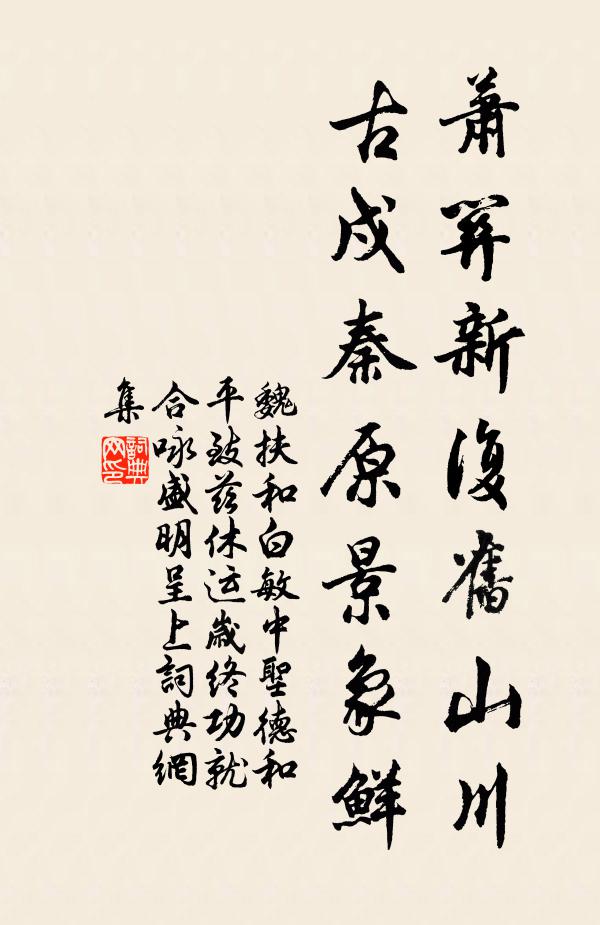 蕭關新復舊山川
古戍秦原景象鮮
魏扶和白敏中聖德和
平致茲休运歲終功就
合咏盛明呈上詞典網
集
詞典
网印